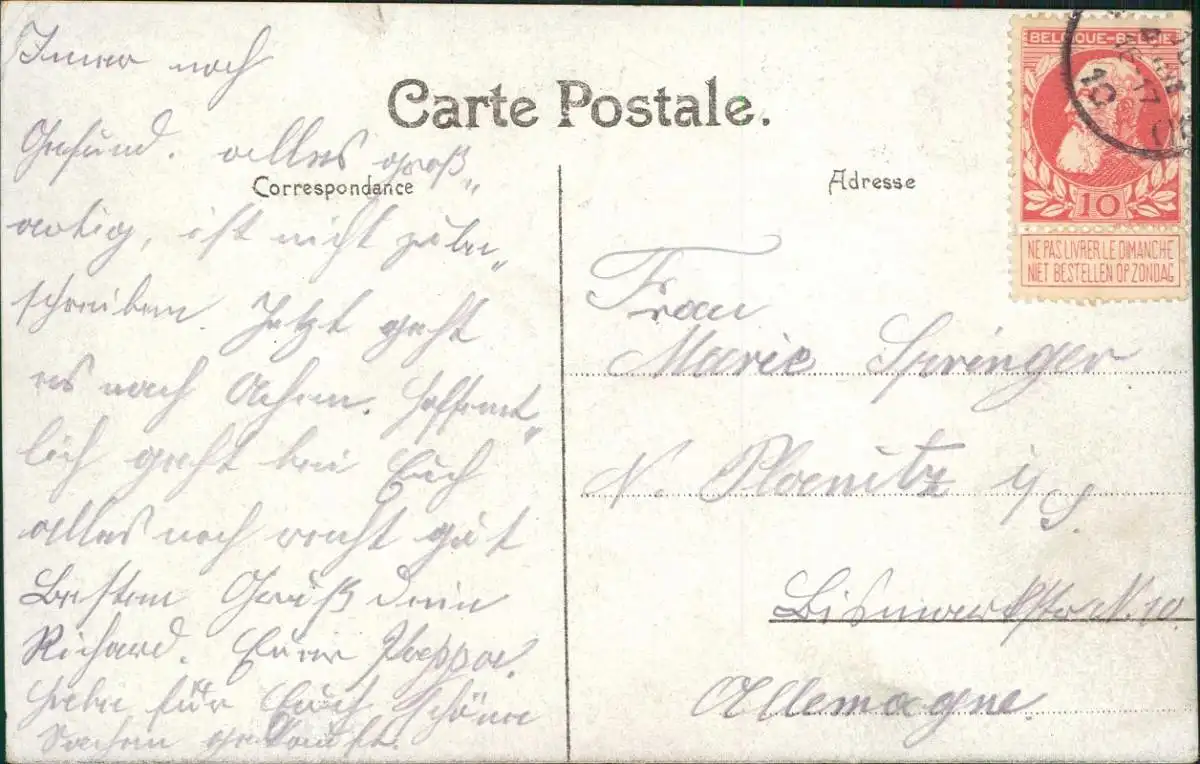 Carte Postale.
Correspondance
Adresse
BELGIQUE-BELGIE
10
NE PAS LIVRER LE DIMANCHE
NIET BESTELLEN OP ZONDAG
Immer noch
Gesund. alles groß„
artig, ist nicht zu be„
schreiben. Jetzt geht
es nach Achen. Hoffent„
lich geht bei Euch
alles noch recht gut
Besten Gruß Dein
Richard. Euer Pappa.
Habe für Euch schöne
Sachen gekauft.
Frau
Marie Springer
N. Planitz i/S.
Bismarkstr N. 10.
Allemagne.